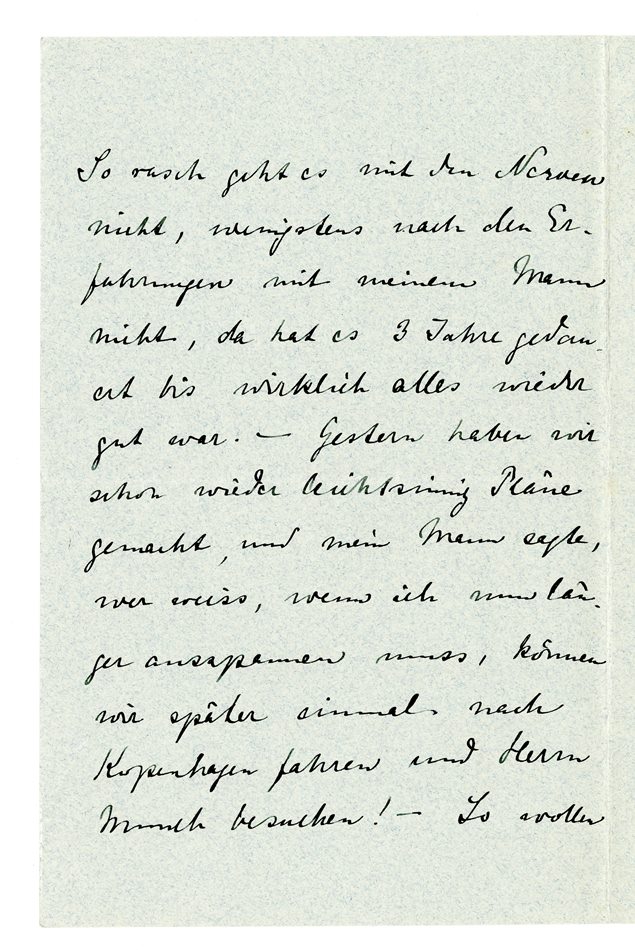 So rasch geht es mit den Nerven
nicht, wenigstens nach den Er-
fahrungen mit meinem Mann
nicht, da hat es 3 Jahre gedau-
ert bis wirklich alles wieder
gut war. — Gestern haben wir
schon wieder leichtsinnig Pläne
gemacht, und mein Mann sagte,
wer weiss, wenn ich nun län-
ger ausspannen muss, können
wir später einmal nach
Kopenhagen fahren und Herrn
Munch besuchen! — So wollen